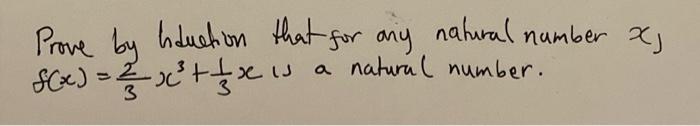 Prove by Induction that for any natural number x,
f(x) = 2/3 x³ + 1/3 x is a natural number.